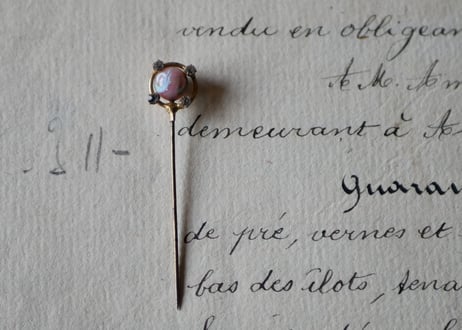 vendu en obligean
A M. Am
demeurant à A
Quara
de pré, vernes et
bas des îlots, tena